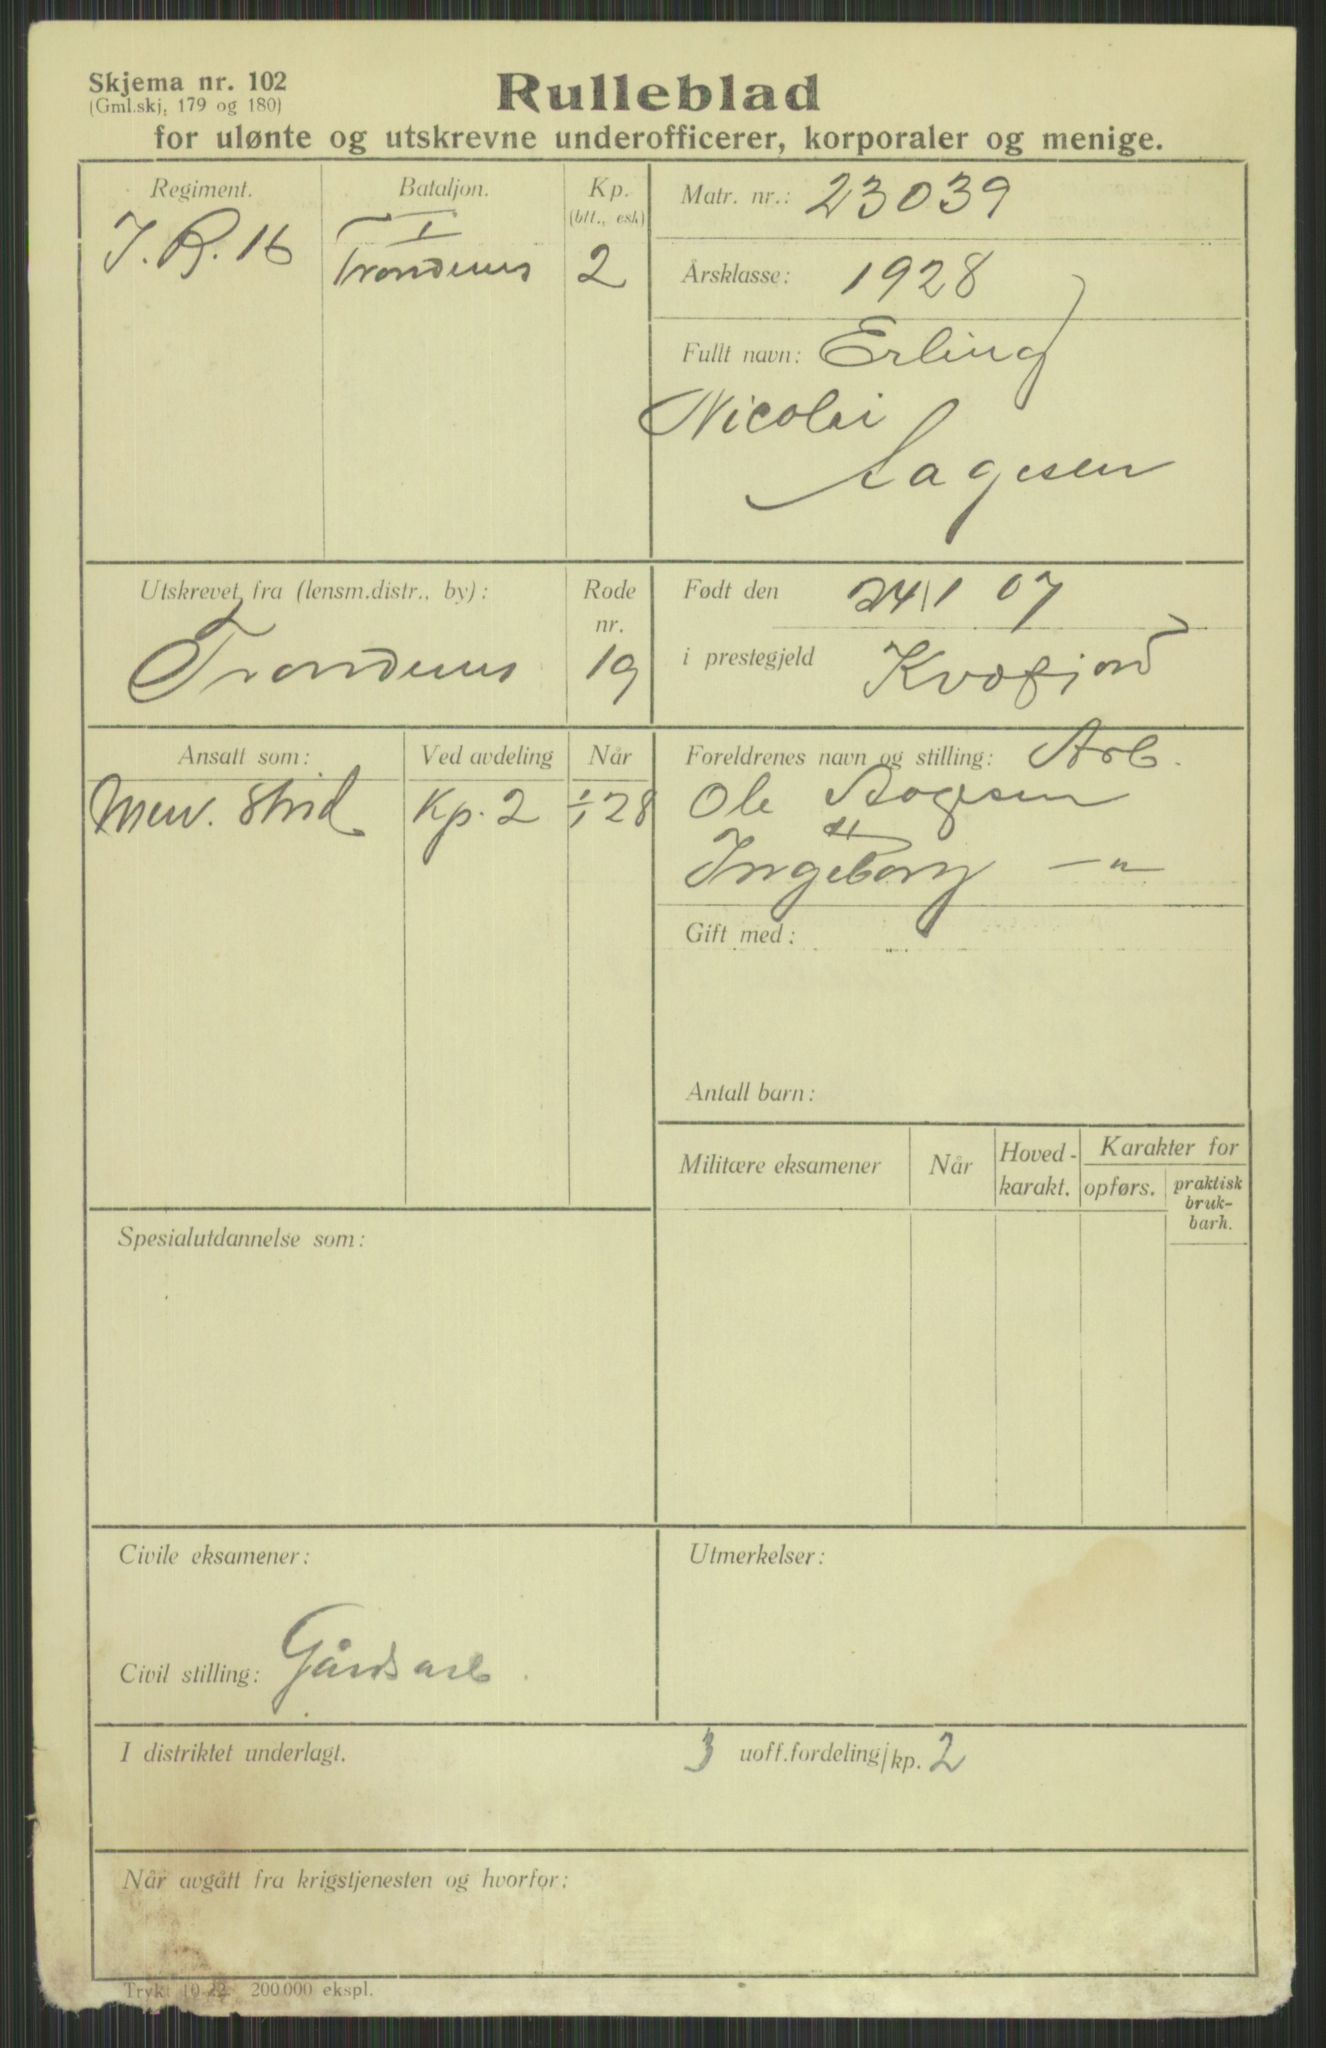 Skjema nr. 102
(Gml.skj. 179 og 180)
Rulleblad
for ulønte og utskrevne underofficerer, korporaler og menige.
Regiment.
I.R. 16
Bataljon.
I
Trondenes
Kp.
(btt., esk)
2
Matr. nr.: 23039
Årsklasse: 1928
Fullt navn: Erling
Nicolai
Aagesen
Utskrevet fra (lensm.distr., by):
Trondenes
Rode
nr.
19
Født den 24/1 07
i prestegjeld Kvæfjord
Ansatt som:
Men. strid
Ved avdeling
Kp. 2
Når
1/1 28
Foreldrenes navn og stilling: Arb.
Ole Aagesen
Ingeborg — " —
Gift med:
Antall barn:
Militære eksamener
Når
Hoved-
karakt.
Karakter for
opførs.
praktisk
bruk-
barh.
Spesialutdannelse som:
Civile eksamener:
Civil stilling: Gårdsarb.
Utmerkelser:
I distriktet underlagt.
3 uoff.fordeling/kp. 2
Når avgått fra krigstjenesten og hvorfor:
Trykt 10-22. 200.000 ekspl.